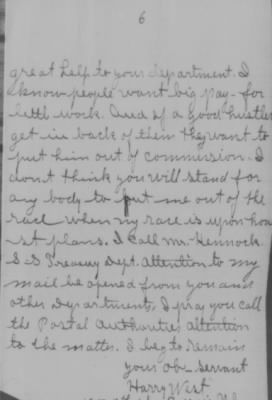 6
great help to your department. I
know people want big pay - for
little work. And if a good hustler
get in back of them they want to
put him out of commission. I
don't think you will stand for
any body to put me out of the
race when my race is upon hon
st plans. I call Mr. Kennock
S.S Treasury Dept. Attention to my
mail be opened from you and
other Departments, I pra you call
the Postal Authorities attention
to the matter. I beg to remain
your Obt. Servant
Harry West